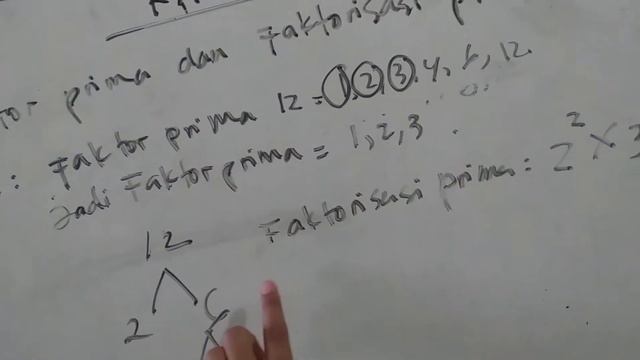 prima dan Faktorisasi
: Faktor prima 12 = 1, 2, 3, 4, 6, 12.
Jadi Faktor prima = 1, 2, 3.
Faktorisasi prima: 2² × 3
12
2 6